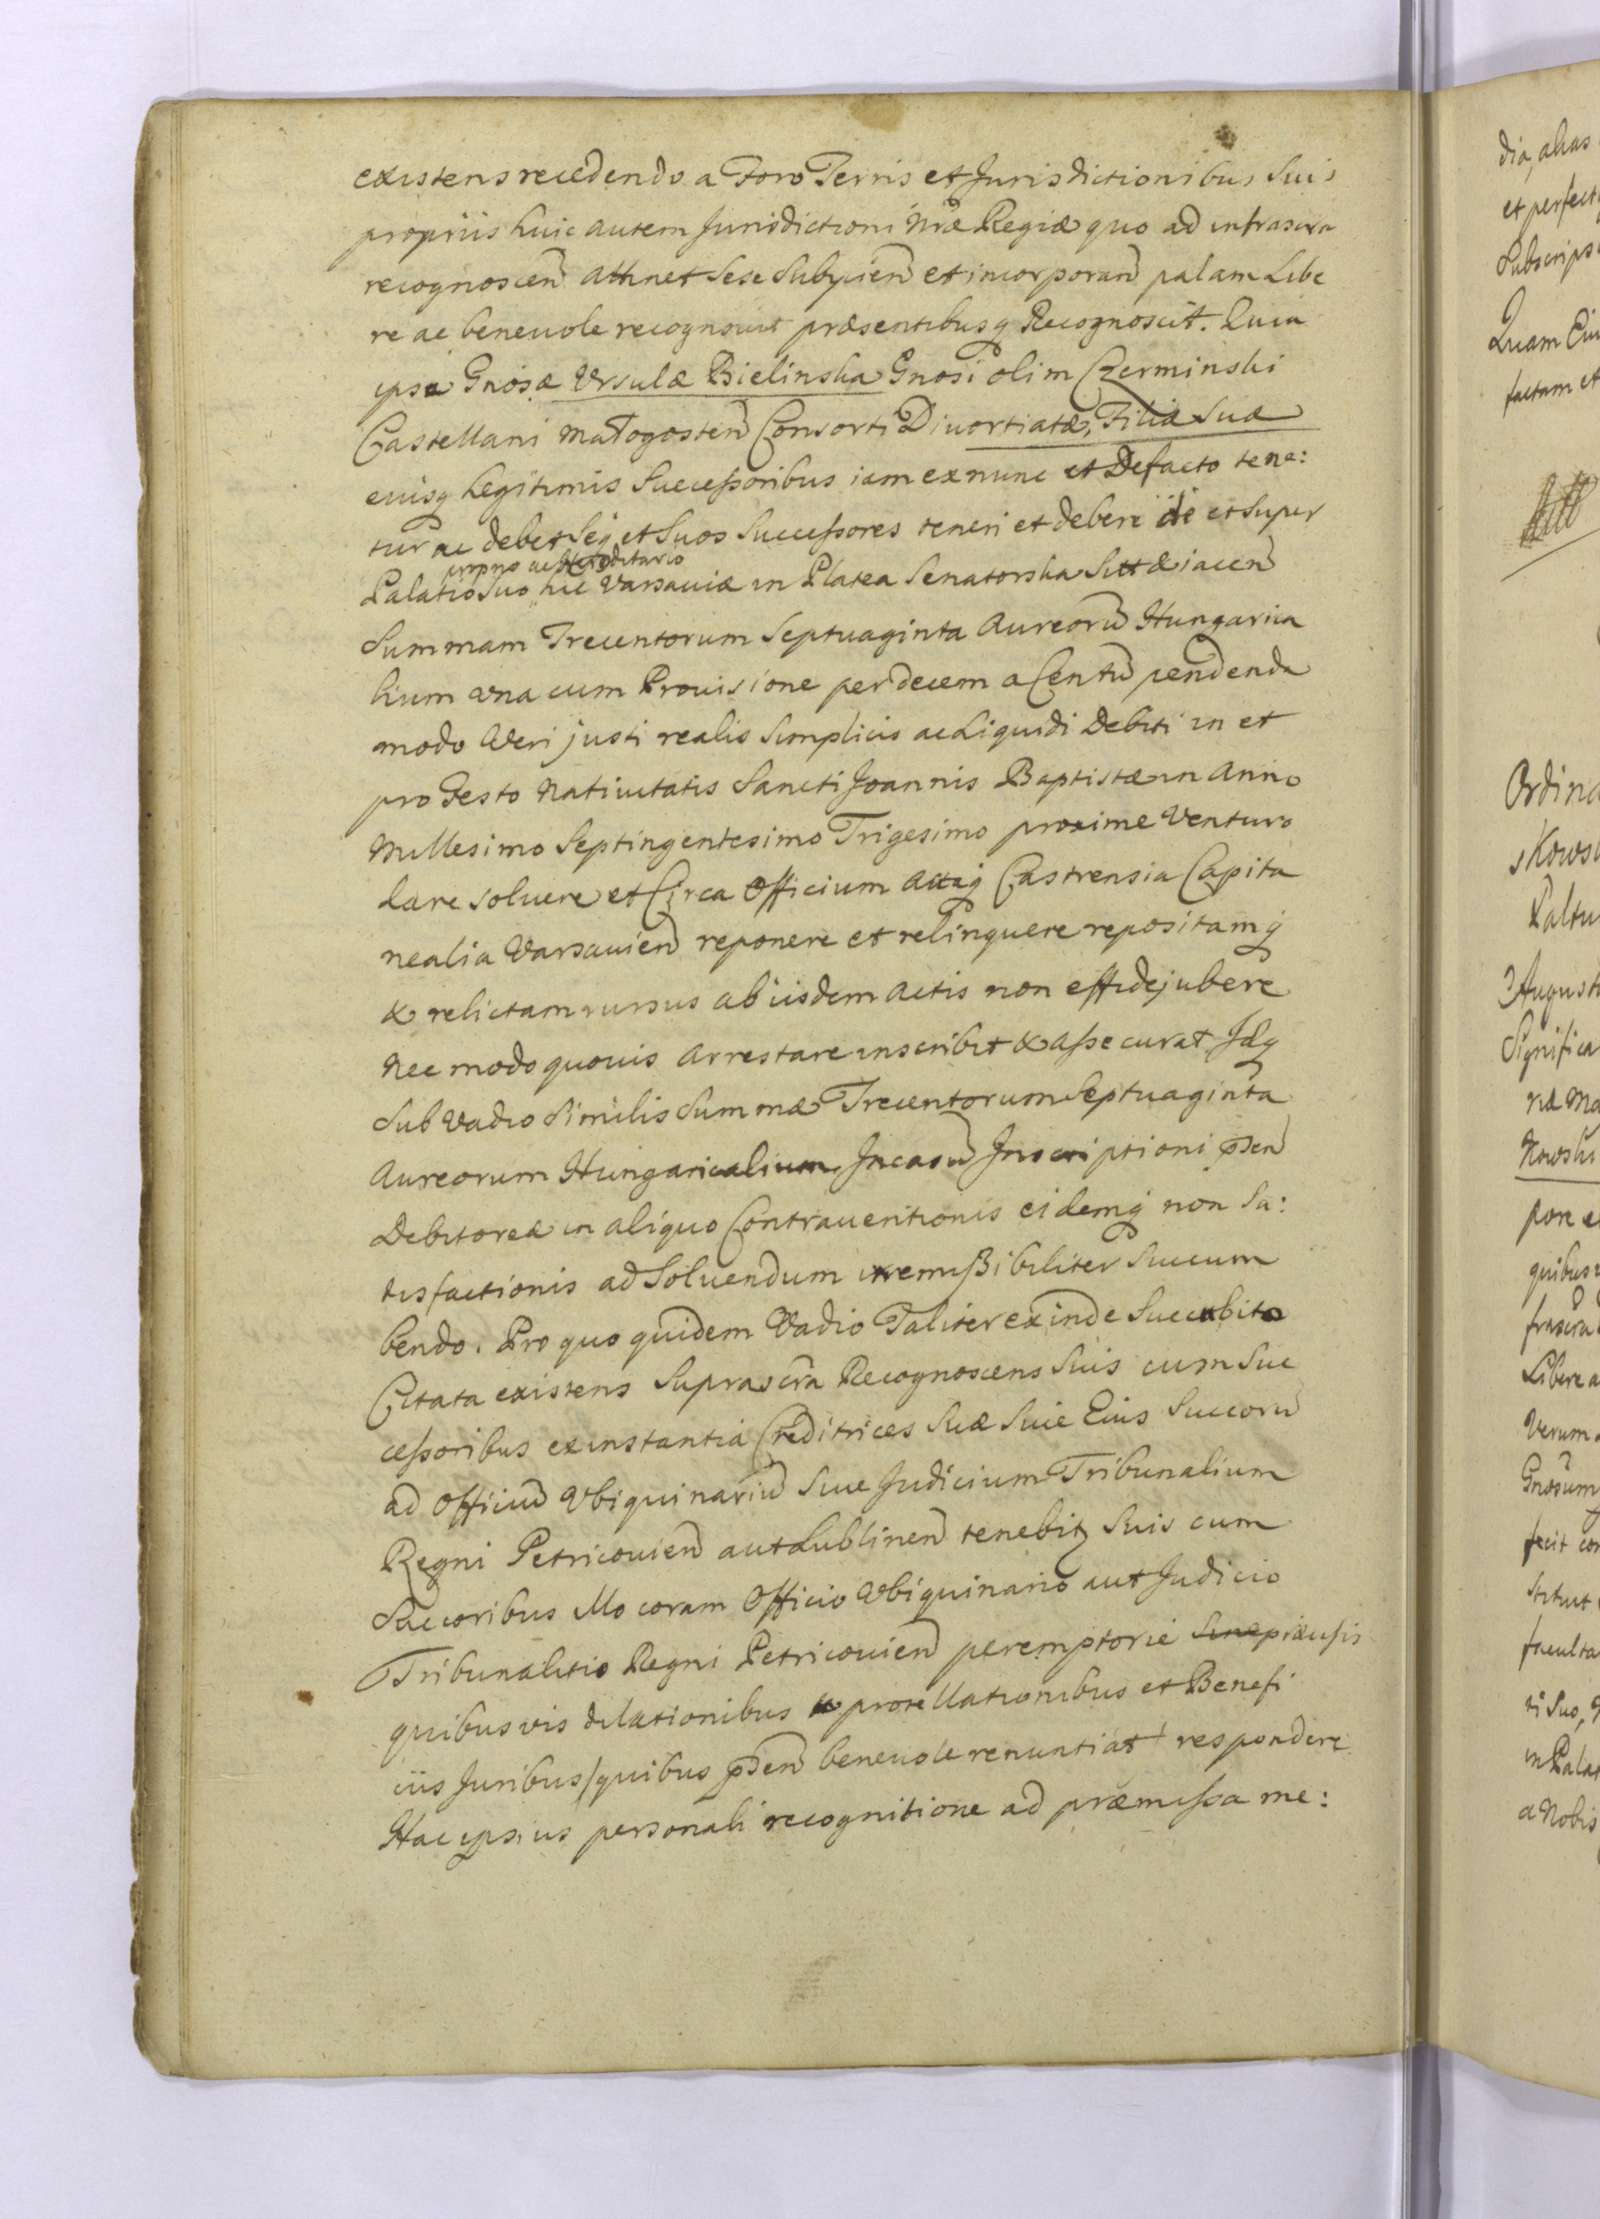 existens recedendo a Foro Terris et Jurisdictionibus Suis
propriis huic autem Jurisdictioni nrae Regiae quo ad infrascra
recognoscen attinet Sese Subyicien et incorporan palam Libe
re ac beneuole recognouit praesentibusq Recognoscit. Quia
ipsa Gnosae Vrsulae Bielinska Gnosi olim Czerminski
Castellani małogosten Consorti Diuortiatae, Filiae Suae
eiusq Legitimis Successoribus iam exnunc et Defacto tene:
tur ac debet Seq et Suos Successores teneri et debere de et Super
proprio ac Hereditario
Palatio Suo hic Varsauiae in Platea Senatorska Sitt & iacen
Summam Trecentorum Septuaginta Aureoru Hungarica
lium vna cum Prouisione per decem a Centu pendenda
modo Veri justi realis Simplicis ac Liquidi Debiti in et
pro Festo Natiuitatis Sancti Joannis Baptistae in Anno
Millesimo Septingentesimo Trigesimo proxime Venturo
dare soluere et Circa Officium Actaq Castrensia Capita
nealia Varsauien reponere et relinquere repositamq
& relictam rursus ab iisdem Actis non effidejubere
Nec modo quouis Arrestare inscribit & assecurat Idq
Sub Vadio Similis Summae Trecentorum Septuaginta
Aureorum Hungaricalium, Incasu Inscriptioni psen
Debitorea in aliquo Contrauentionis eidemq non Sa:
tisfactionis ad Soluendum irremissibiliter Succum
bendo. Pro quo quidem Vadio Taliter exinde Succubito
Citata existens Suprascra Recognoscens Suis cum Suc
cessoribus ex instantia Creditrices Suae Siue Eius Succoru
ad Officiu Vbiquinariu Siue Judicium Tribunalium
Regni Petricouien aut Lublinen tenebit Suis cum
Succoribus Illo coram Officio Vbiquinario aut Judicio
Tribunalitio Regni Petricouien peremptorie praeusis
quibusvis dilationibus & protellationibus et Benefi
ciis Juribus /quibus psen beneuole renuntiat/ respondere
Hac ipsius personali recognitione ad praemissa me:
dia, alias
et perfect
Subscrips
Quam Eiu
factam et
Ordina
skowsk
Paltu
Augusti
Significa
na Ma
Kowski
pore e
quibus
frascra
Libere a
Verum
Gnosum
fecit con
stituit
faculta
ti Suo,
in Palat
a Nobis